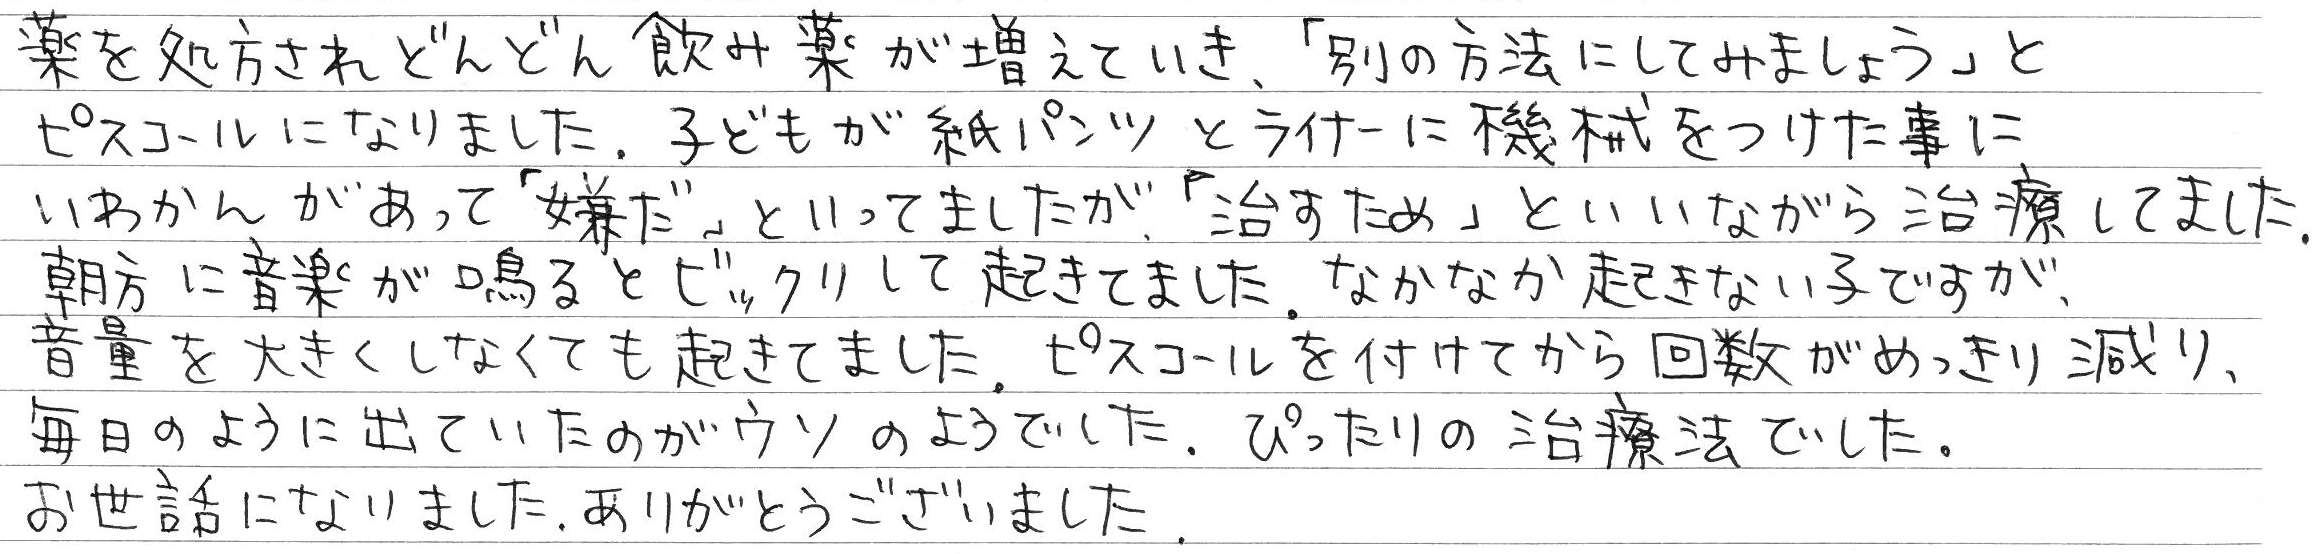 薬を処方されどんどん飲み薬が増えていき、「別の方法にしてみましょう」と
ピスコールになりました。子どもが紙パンツとライナーに機械をつけた事に
いわかんがあって「嫌だ」といってましたが、「治すため」といいながら治療してました。
朝方に音楽が鳴るとビックリして起きてました。なかなか起きない子ですが、
音量を大きくしなくても起きてました。ピスコールを付けてから回数がめっきり減り、
毎日のように出ていたのがウソのようでした。ぴったりの治療法でした。
お世話になりました。ありがとうございました。